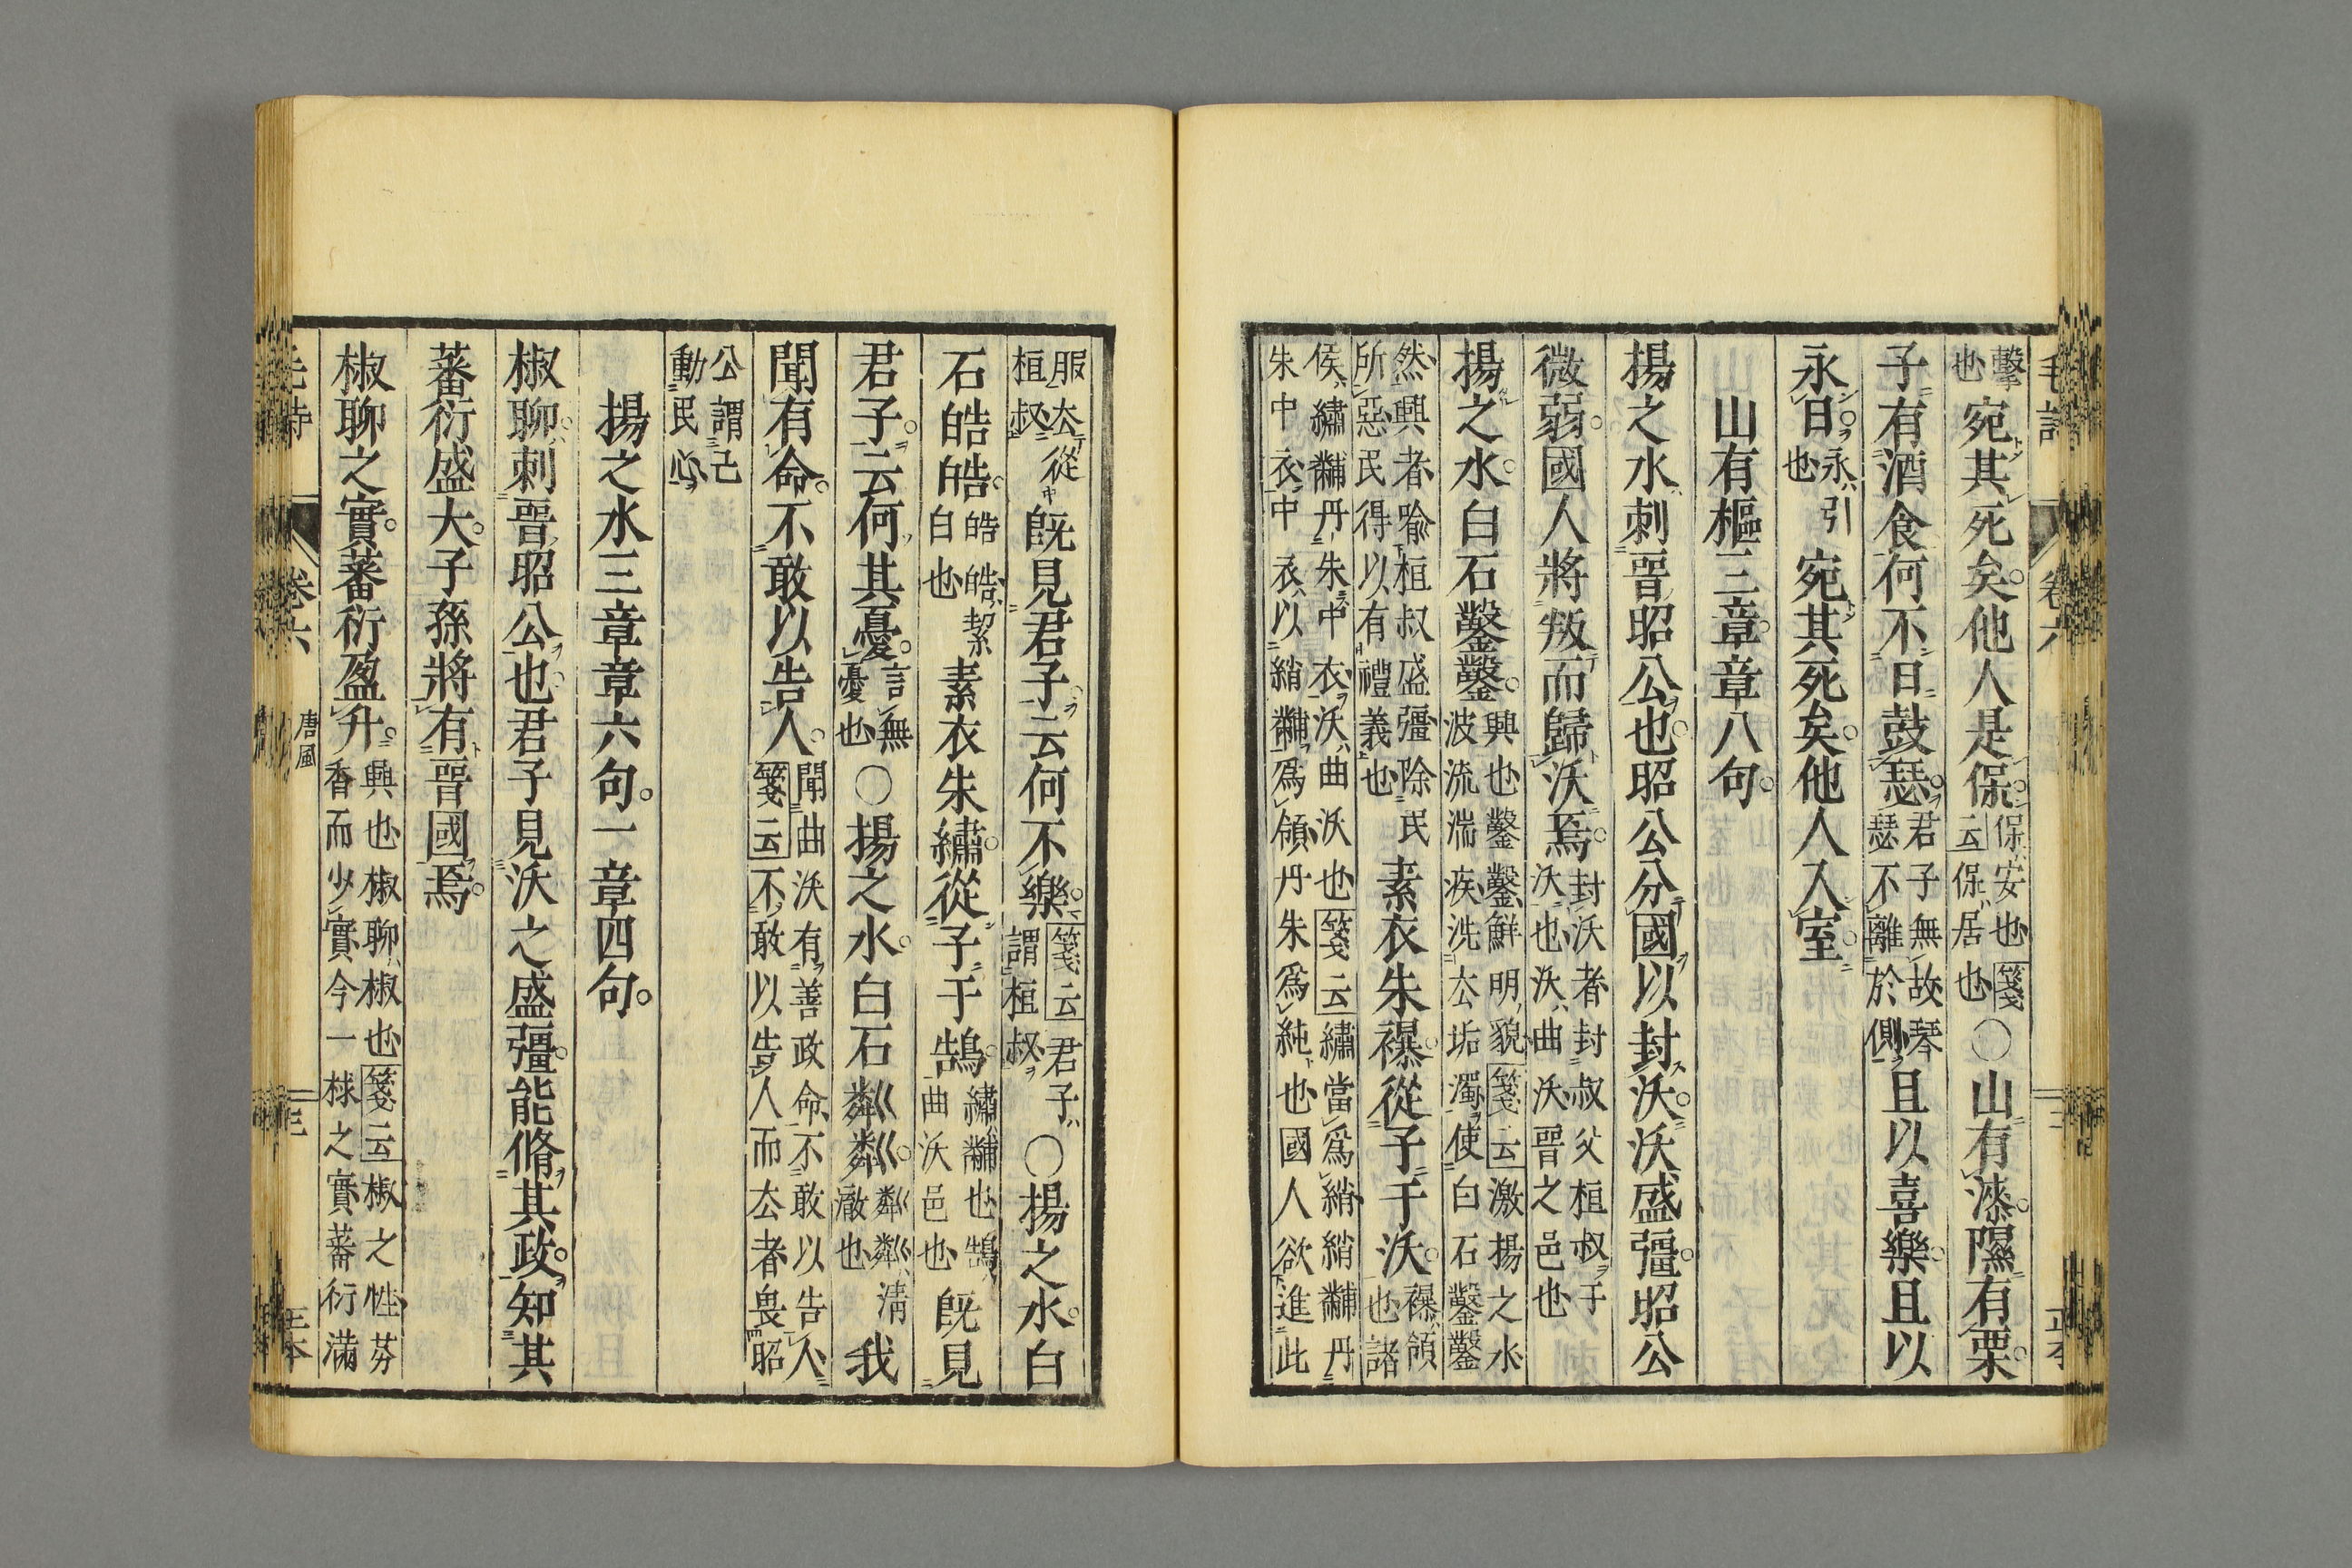 擊也宛其死矣他人是保保安也箋云保居也○山有漆隰有栗
子有酒食何不日鼓瑟君子無故琴瑟不離於側且以喜樂且以
永日永引也宛其死矣他人入室
山有樞三章章八句
揚之水刺晉昭公也昭公分國以封沃沃盛彊昭公
微弱國人將叛而歸沃焉封沃者封叔父桓叔于沃也沃曲沃晉之邑也
揚之水白石鑿鑿興也鑿鑿鮮明貌箋云激揚之水波流湍疾洗去垢濁使白石鑿鑿
然興者喻桓叔盛彊除民所惡民得以有禮義也素衣朱襮從子于沃襮領也諸
侯繡黼丹朱中衣沃曲沃也箋云繡當爲綃綃黼丹朱中衣中衣以綃黼爲領丹朱爲純也國人欲進此
服去從桓叔既見君子云何不樂箋云君子謂桓叔○揚之水白
石皓皓皓皓絜白也素衣朱繡從子于鵠繡黼也鵠曲沃邑也既見
君子云何其憂言無憂也○揚之水白石粼粼粼粼清澈也我
聞有命不敢以告人聞曲沃有善政命不敢以告人箋云不敢以告人而去者畏昭
公謂己動民心
揚之水三章章六句一章四句
椒聊刺晉昭公也君子見沃之盛彊能脩其政知其
蕃衍盛大子孫將有晉國焉
椒聊之實蕃衍盈升興也椒聊椒也箋云椒之性芬香而少實今一梂之實蕃衍滿
卷六
唐風